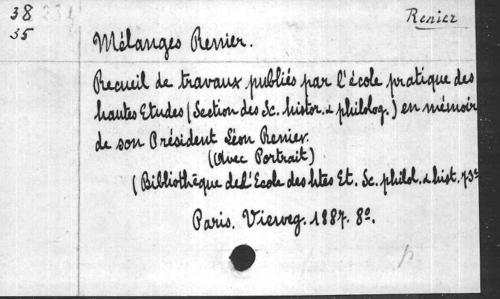 38 Renier
35
Mélanges Renier.
Recueil de travaux publiés par l'école pratique des
hautes Etudes (Section des Sc. histor. & philolog.) en mémoire
de son Président Léon Renier.
(Avec Portrait)
(Bibliothèque de l'Ecole des htes Et. Sc. philol. & hist. 73e
Paris. Vieweg. 1887. 8º.